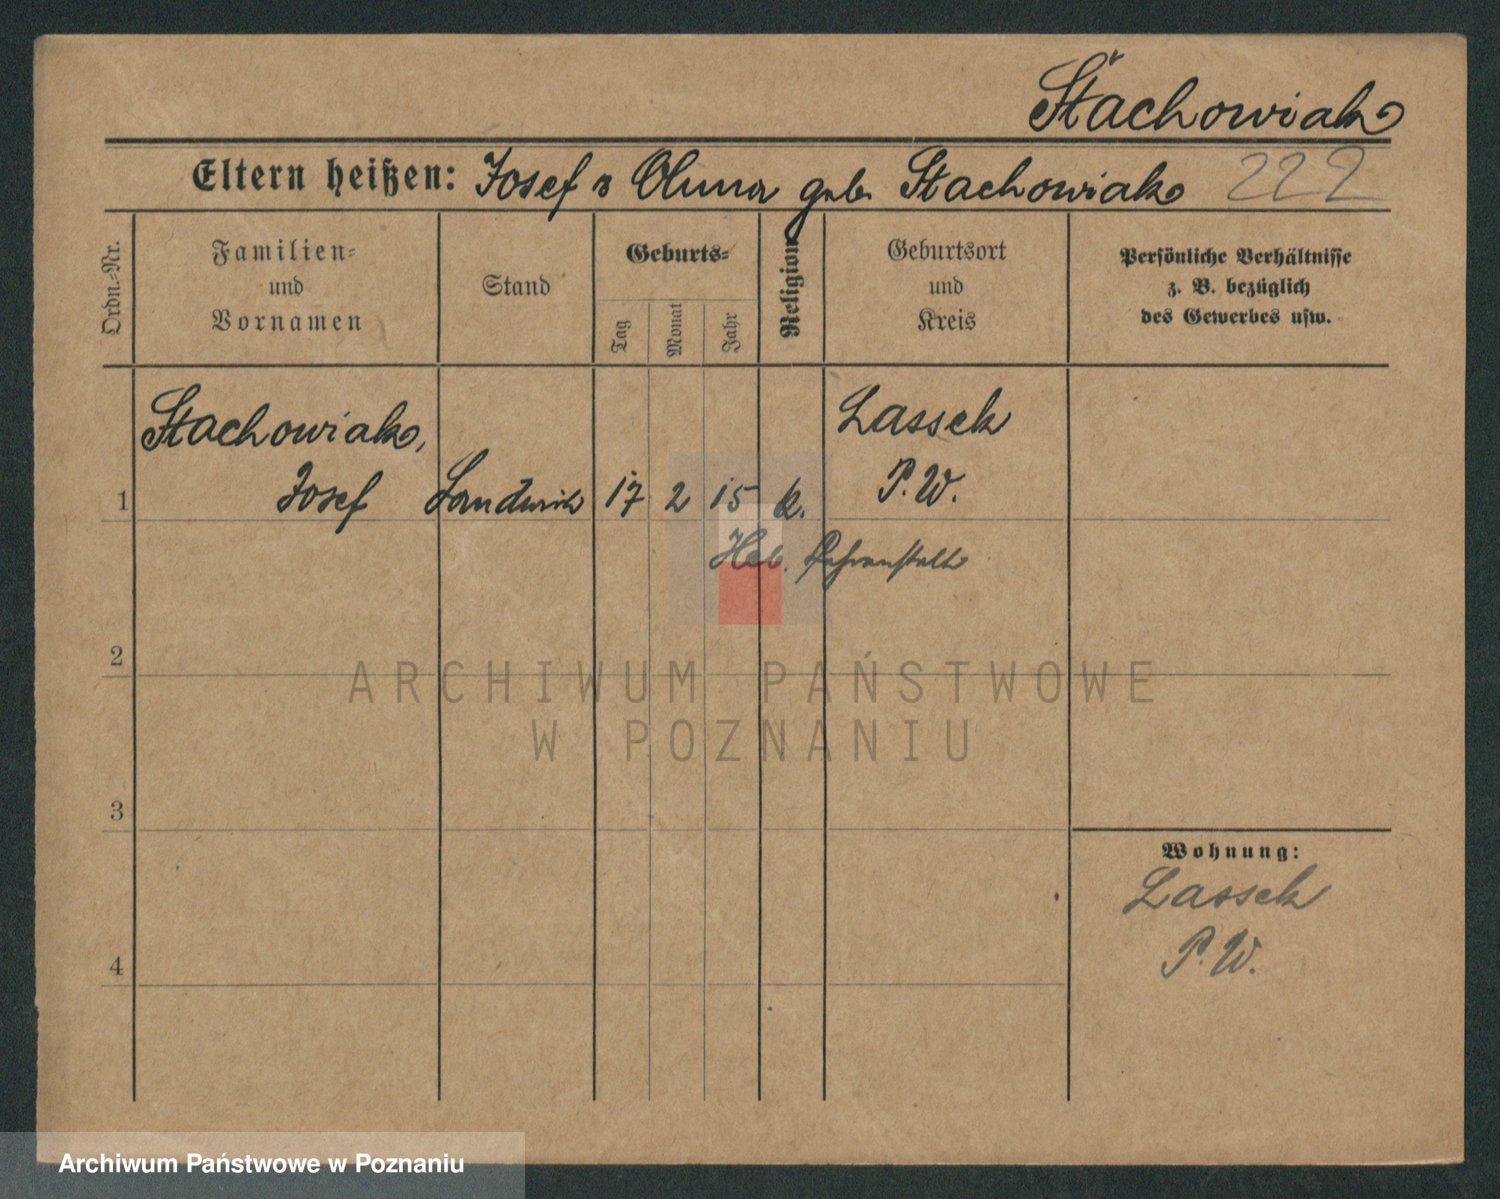 Stachowiak
Eltern heißen: Josef u Anna geb. Stachowiak 222
Ordn.-Nr.
Familien-
und
Vornamen
Stand
Geburts-
Tag
Monat
Jahr
Religion
Geburtsort
und
Kreis
Persönliche Verhältnisse
z. B. bezüglich
des Gewerbes usw.
Stachowiak,
Lassek
1 Josef Landwirt 17 2 15 k. P. W.
Heb. Lehranstalt
2
ARCHIWUM PAŃSTWOWE
W POZNANIU
3
Wohnung:
Lassek
P. W.
4
Archiwum Państwowe w Poznaniu